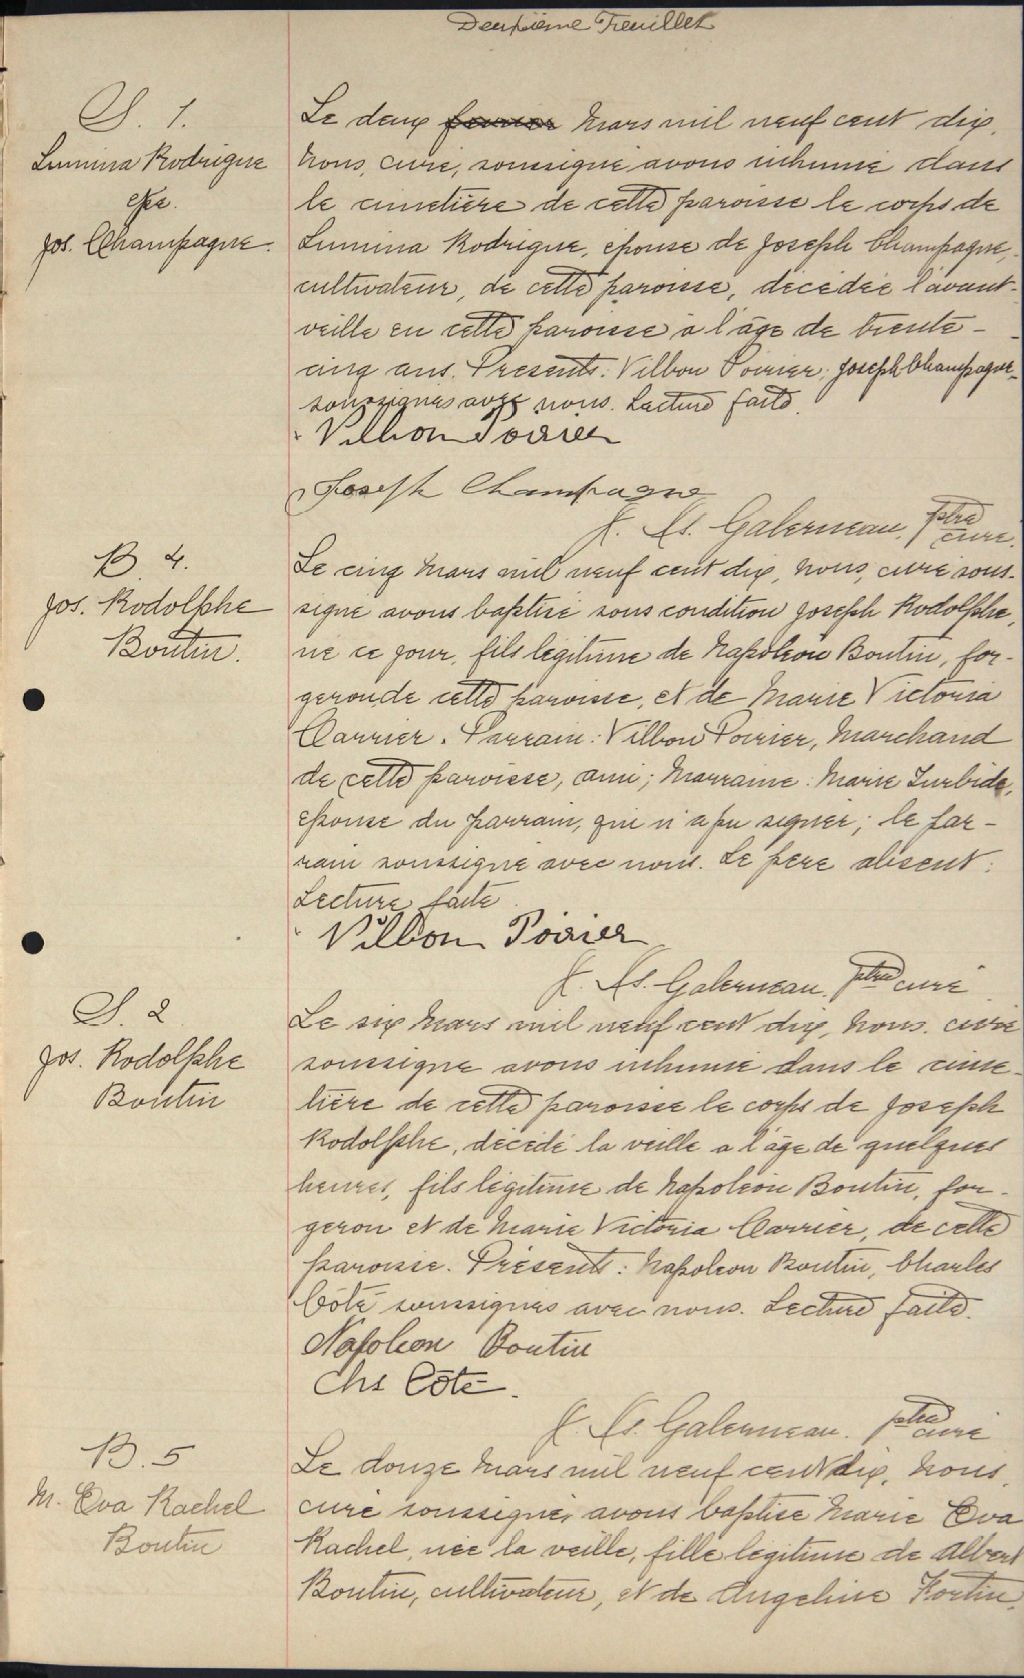 Deuxième Feuillet
S. 1.
Lumina Rodrigue
épse.
Jos. Champagne.
Le deux fevrier Mars mil neuf cent dix,
Nous, curé, soussigné avons inhumé dans
le cimetière de cette paroisse le corps de
Lumina Rodrigue, épouse de Joseph Champagne,
cultivateur, de cette paroisse, décédée l'avant-
veille en cette paroisse à l'âge de trente-
cinq ans. Présents: Vilbon Poirier, Joseph Champagne
soussignés avec nous. Lecture faite.
Vilbon Poirier
Joseph Champagne
J. Galerneau, ptre
curé.
B 4.
Jos. Rodolphe
Boutin.
Le cinq Mars mil neuf cent dix, Nous, curé sous-
signé avons baptisé sous condition Joseph Rodolphe,
né ce jour, fils légitime de Napoléon Boutin, for-
geron, de cette paroisse, et de Marie Victoria
Carrier. Parrain: Vilbon Poirier, Marchand
de cette paroisse, ami; Marraine: Marie Turbide,
épouse du parrain, qui n'a pu signer; le par-
rain soussigné avec nous. Le père absent.
Lecture faite.
Vilbon Poirier
J. Galerneau, ptre curé
S. 2
Jos. Rodolphe
Boutin
Le six Mars mil neuf cent dix, Nous, curé
soussigné avons inhumé dans le cime-
tière de cette paroisse le corps de Joseph
Rodolphe, décédé la veille a l'âge de quelques
heures, fils légitime de Napoléon Boutin, for-
geron et de Marie Victoria Carrier, de cette
paroisse. Présents: Napoléon Boutin, Charles
Côté soussignés avec nous. Lecture faite.
Napoleon Boutin
Chs Côté.
J. Galerneau, ptre
curé
B. 5
M. Eva Rachel
Boutin
Le douze Mars mil neuf cent dix, Nous,
curé soussigné, avons baptisé Marie Eva
Rachel, née la veille, fille légitime de Albert
Boutin, cultivateur, et de Angeline Fortin,